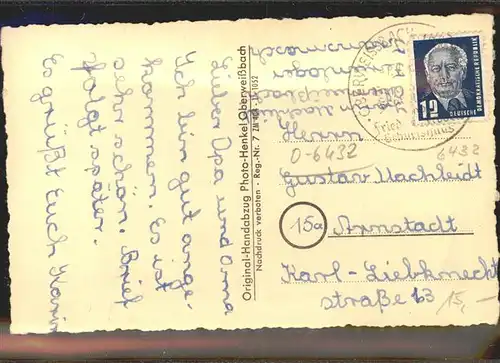 Lieber Opa und Oma
Ich bin gut ange-
kommen. Es ist
sehr schön. Brief
folgt später.
Es grüßt Euch Karin
Original-Handabzug Photo-Henkel Oberweißbach
Nachdruck verboten - Reg.-Nr. 7
OBERWEISSBACH
Geburtshaus
12
DEUTSCHE
DEMOKRATISCHE REPUBLIK
Herrn
O-6432
6432
Gustav Machleidt
15a
Arnstadt
Karl-Liebknecht
straße 13
15,-